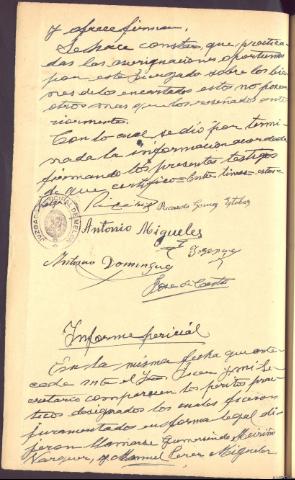 y afirma.
Se hace constar, que practica-
das las averiguaciones oportunas
por este juzgado sobre los bie-
nes de los encartados estos no poseen
otros mas que los reseñados ante-
riormente.
Con lo cual se dió por termi-
nada la información acordada
firmando los presentes, testigos
de que certifico = Entre lineas = estos =
Ricardo Gomez
Antonio Migueles
Antonio Dominguez
Jose de Castro
Informe pericial
En la misma fecha que ante-
cede ante el Sr. Juez y mi Se-
cretario comparecen los peritos prac-
ticos designados los cuales fueron
juramentados en forma legal di-
jeron llamarse Gumersindo Meiriño
Vazquez, y Manuel Perez Miguelez